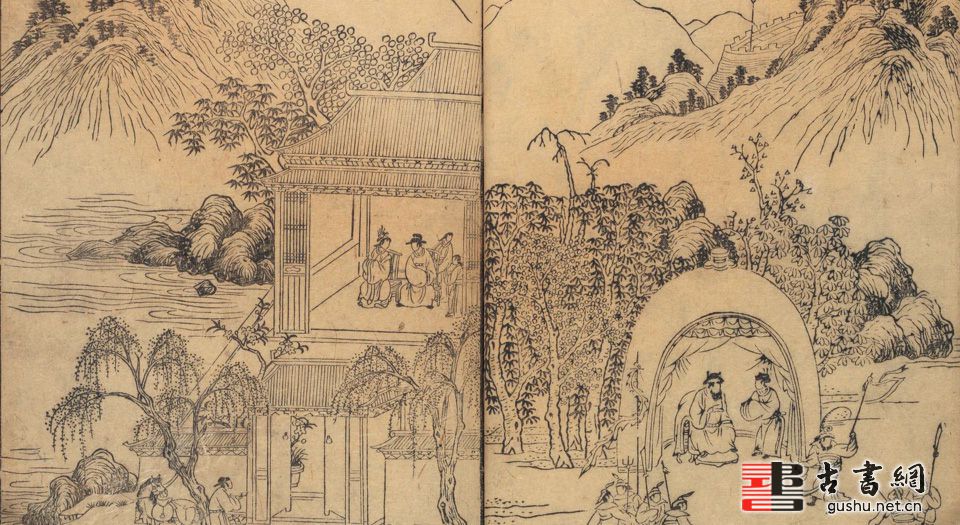 古書網
gushu.net.cn